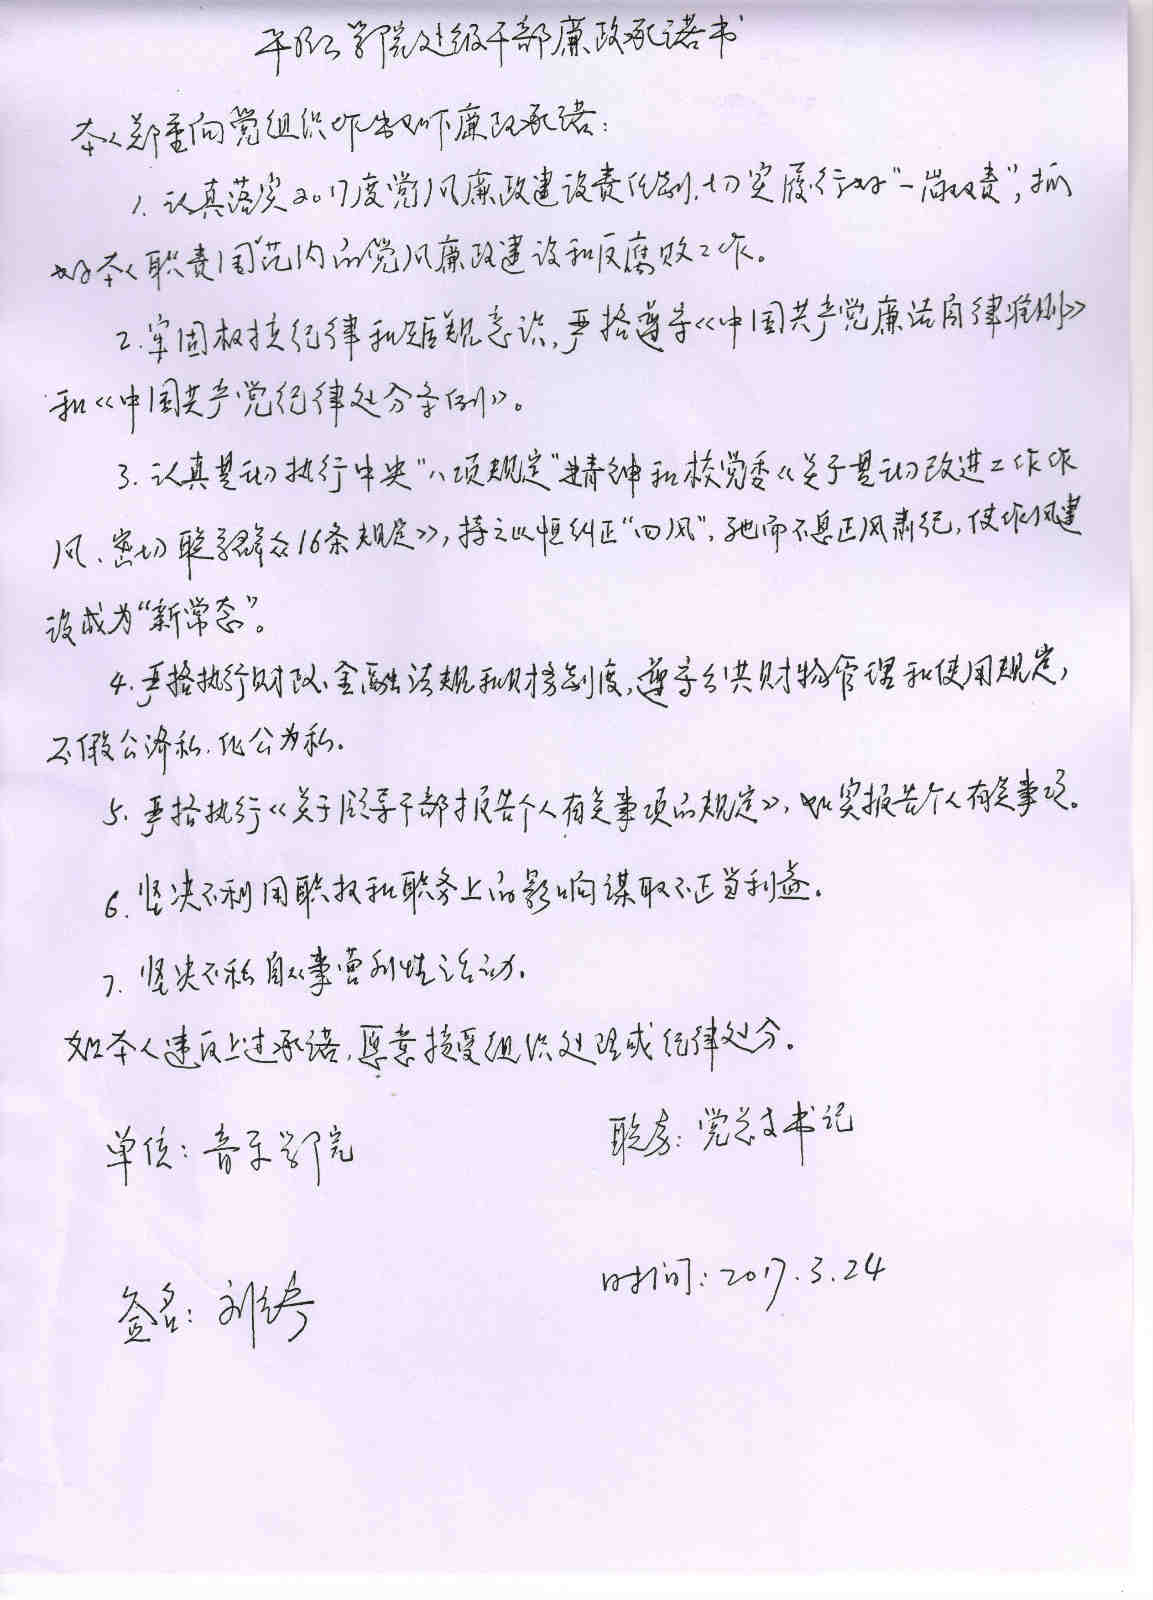 平顶山学院处级干部廉政承诺书
本人郑重向党组织作出如下廉政承诺：
1. 认真落实2017度党风廉政建设责任制，切实履行好“一岗双责”，抓
好本人职责围范内的党风廉政建设和反腐败工作。
2. 牢固树立纪律和规矩意识，严格遵守《中国共产党廉洁自律准则》
和《中国共产党纪律处分条例》。
3. 认真贯彻执行中央“八项规定”精神和校党委《关于贯彻改进工作作
风、密切联系群众16条规定》，持之以恒纠正“四风”，驰而不息正风肃纪，使作风建
设成为“新常态”。
4. 严格执行财政、金融法规和财务制度，遵守公共财物管理和使用规定，
不假公济私、化公为私。
5. 严格执行《关于领导干部报告个人有关事项的规定》，如实报告个人有关事项。
6. 坚决不利用职权和职务上的影响谋取不正当利益。
7. 坚决不私自从事营利性活动。
如本人违反上述承诺，愿意接受组织处理或纪律处分。
单位：音乐学院
职务：党总支书记
签名：刘
时间：2017.3.24